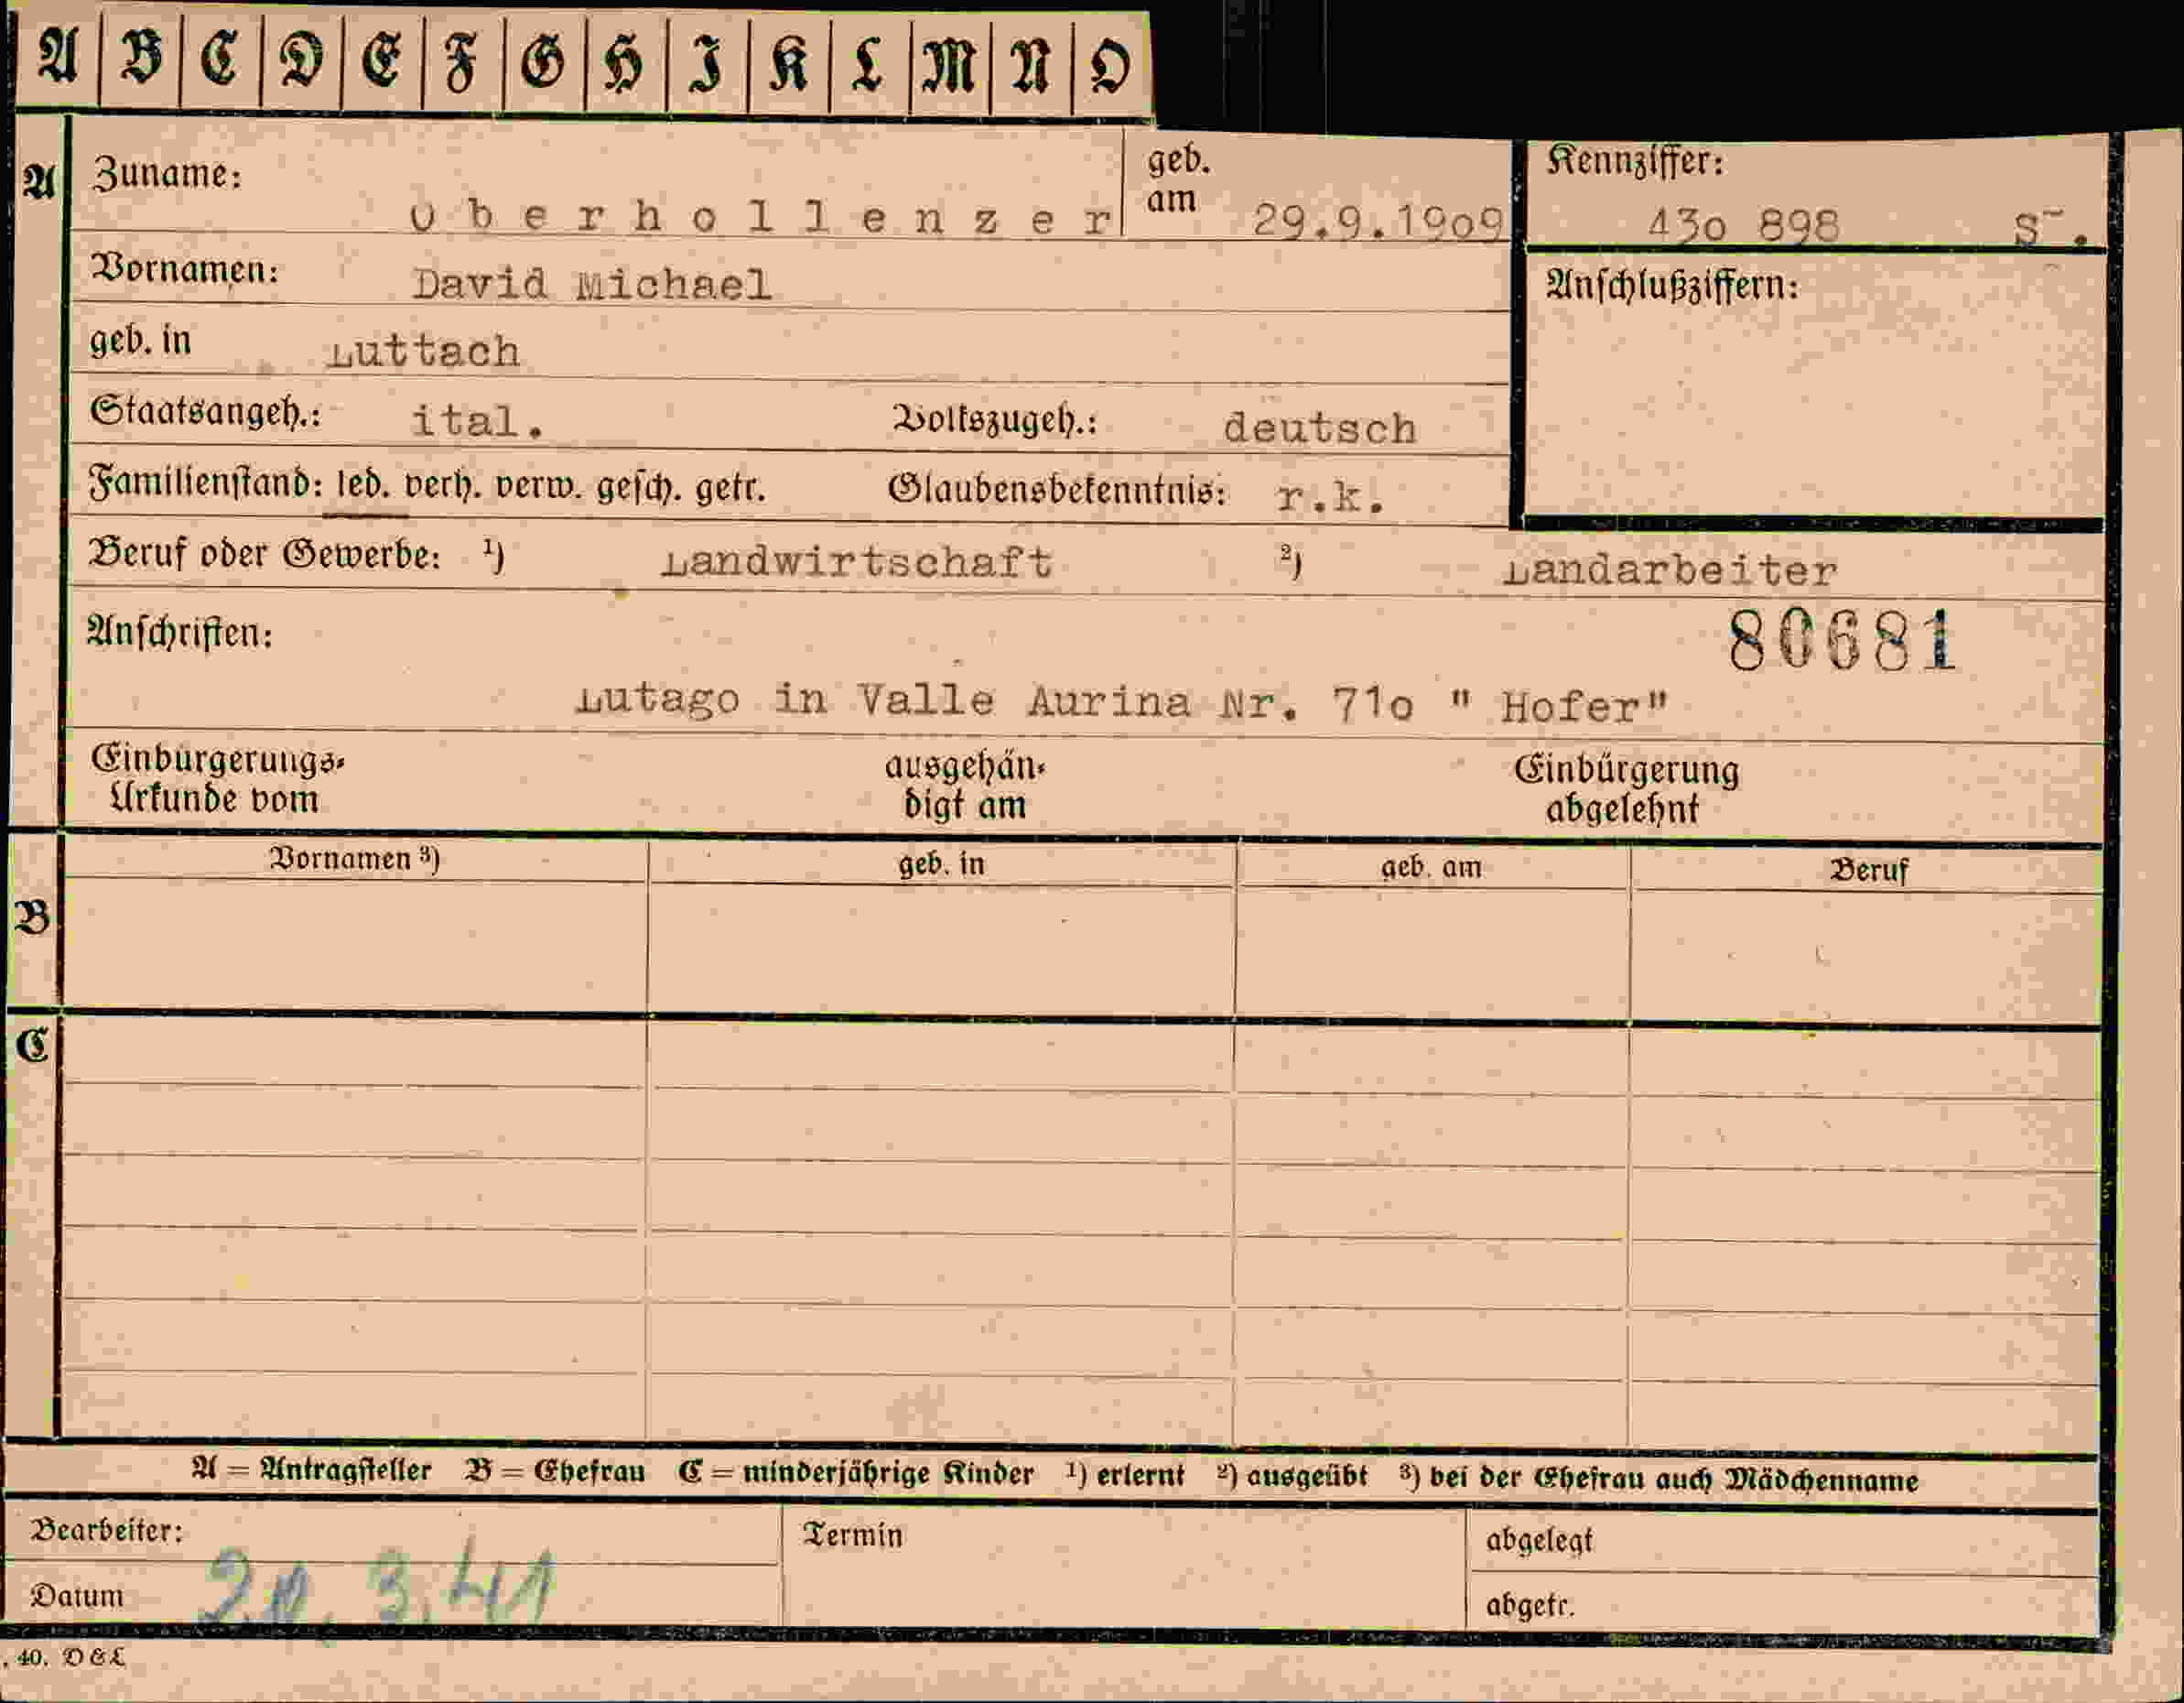 A B C D E F G H I K L M N O
A Zuname: Oberhollenzer geb. am 29.9.1909 Kennziffer: 430 898 S-.
Vornamen: David Michael Anschlußziffern:
geb. in Luttach
Staatsangeh.: ital. Volkszugeh.: deutsch
Familienstand: led. verh. verw. gesch. getr. Glaubensbekenntnis: r.k.
Beruf oder Gewerbe: ¹) Landwirtschaft ²) Landarbeiter
Anschriften: 80681
Lutago in Valle Aurina Nr. 710 " Hofer"
Einbürgerungs-Urkunde vom ausgehändigt am Einbürgerung abgelehnt
Vornamen ³) geb. in geb. am Beruf
B
C
A = Antragsteller B = Ehefrau C = minderjährige Kinder ¹) erlernt ²) ausgeübt ³) bei der Ehefrau auch Mädchenname
Bearbeiter: Termin abgelegt
Datum 3.41 abgetr.
. 40. D & L